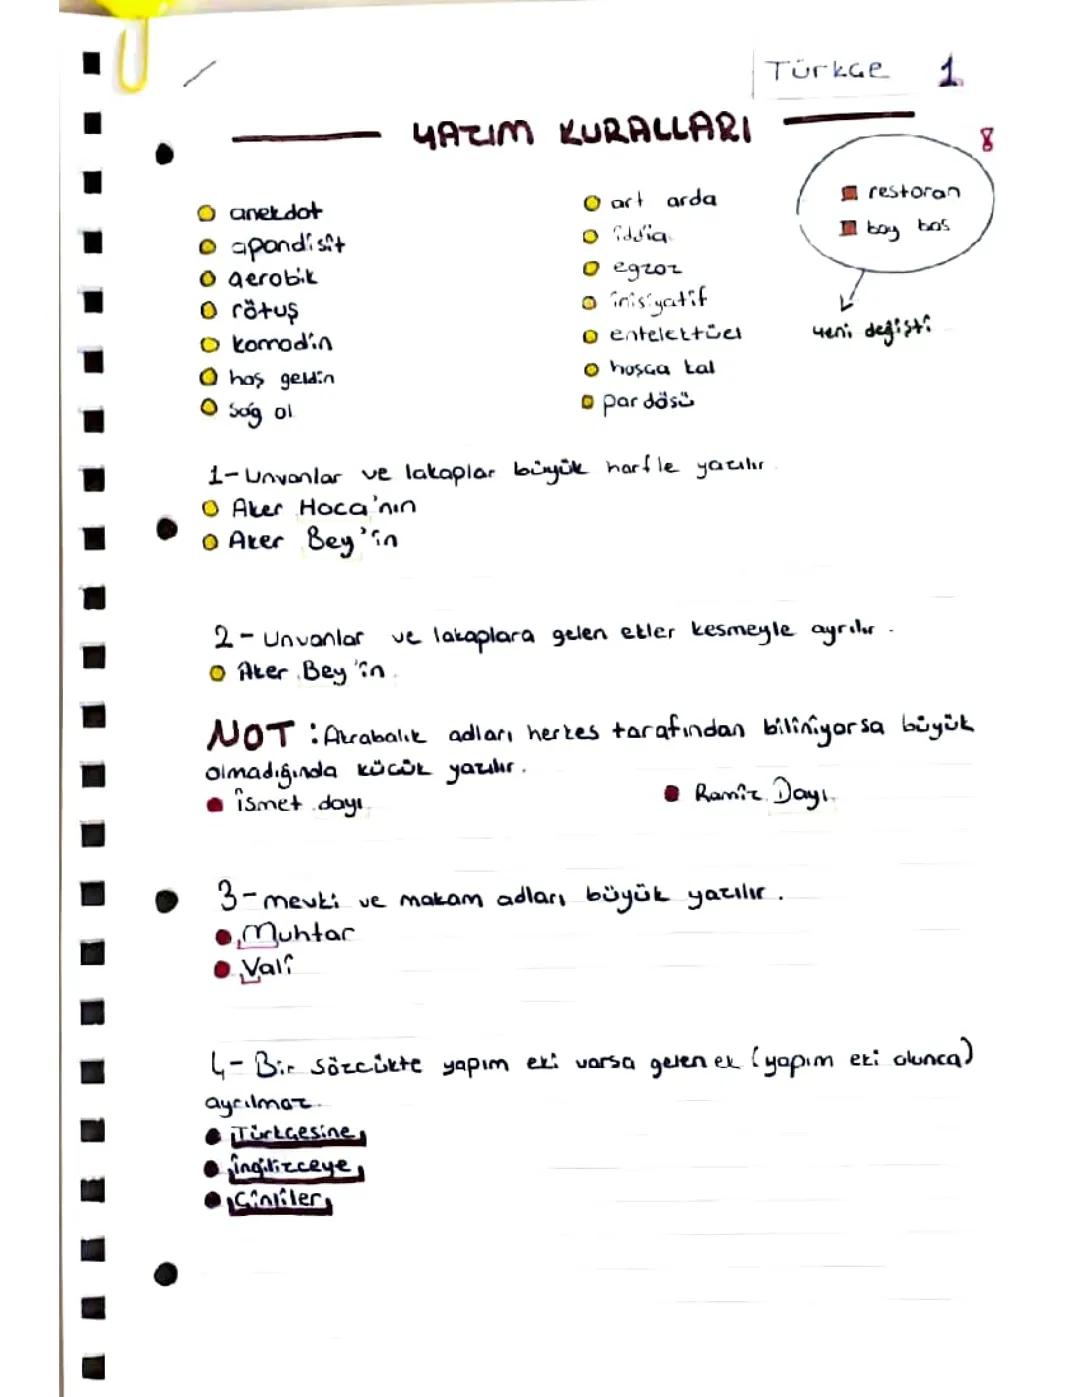 Türkçe 1
YAZIM KURALLARI
8
anekdot
apandisit
aerobik
rötuş
komodin
hoş geldin
Sağ ol
art arda
iddia
egzoz
inisiyatif
entelektüel
hoşça kal
pardösü
restoran
boy bos
yeni değişti
1- Unvanlar ve lakaplar büyük harfle yazılır.
Aker Hoca'nın
Aker Bey'in
2- Unvanlar ve lakaplara gelen ekler kesmeyle ayrılır.
Aker Bey'in
NOT: Akrabalık adları herkes tarafından biliniyorsa büyük
olmadığında küçük yazılır.
ismet dayı
Ramiz Dayı
3- mevki ve makam adları büyük yazılır.
Muhtar
Vali
4- Bir sözcükte yapım eki varsa gelen ek (yapım eki olunca)
ayrılmaz.
Türkçesine
ingilizceye
Çinliler